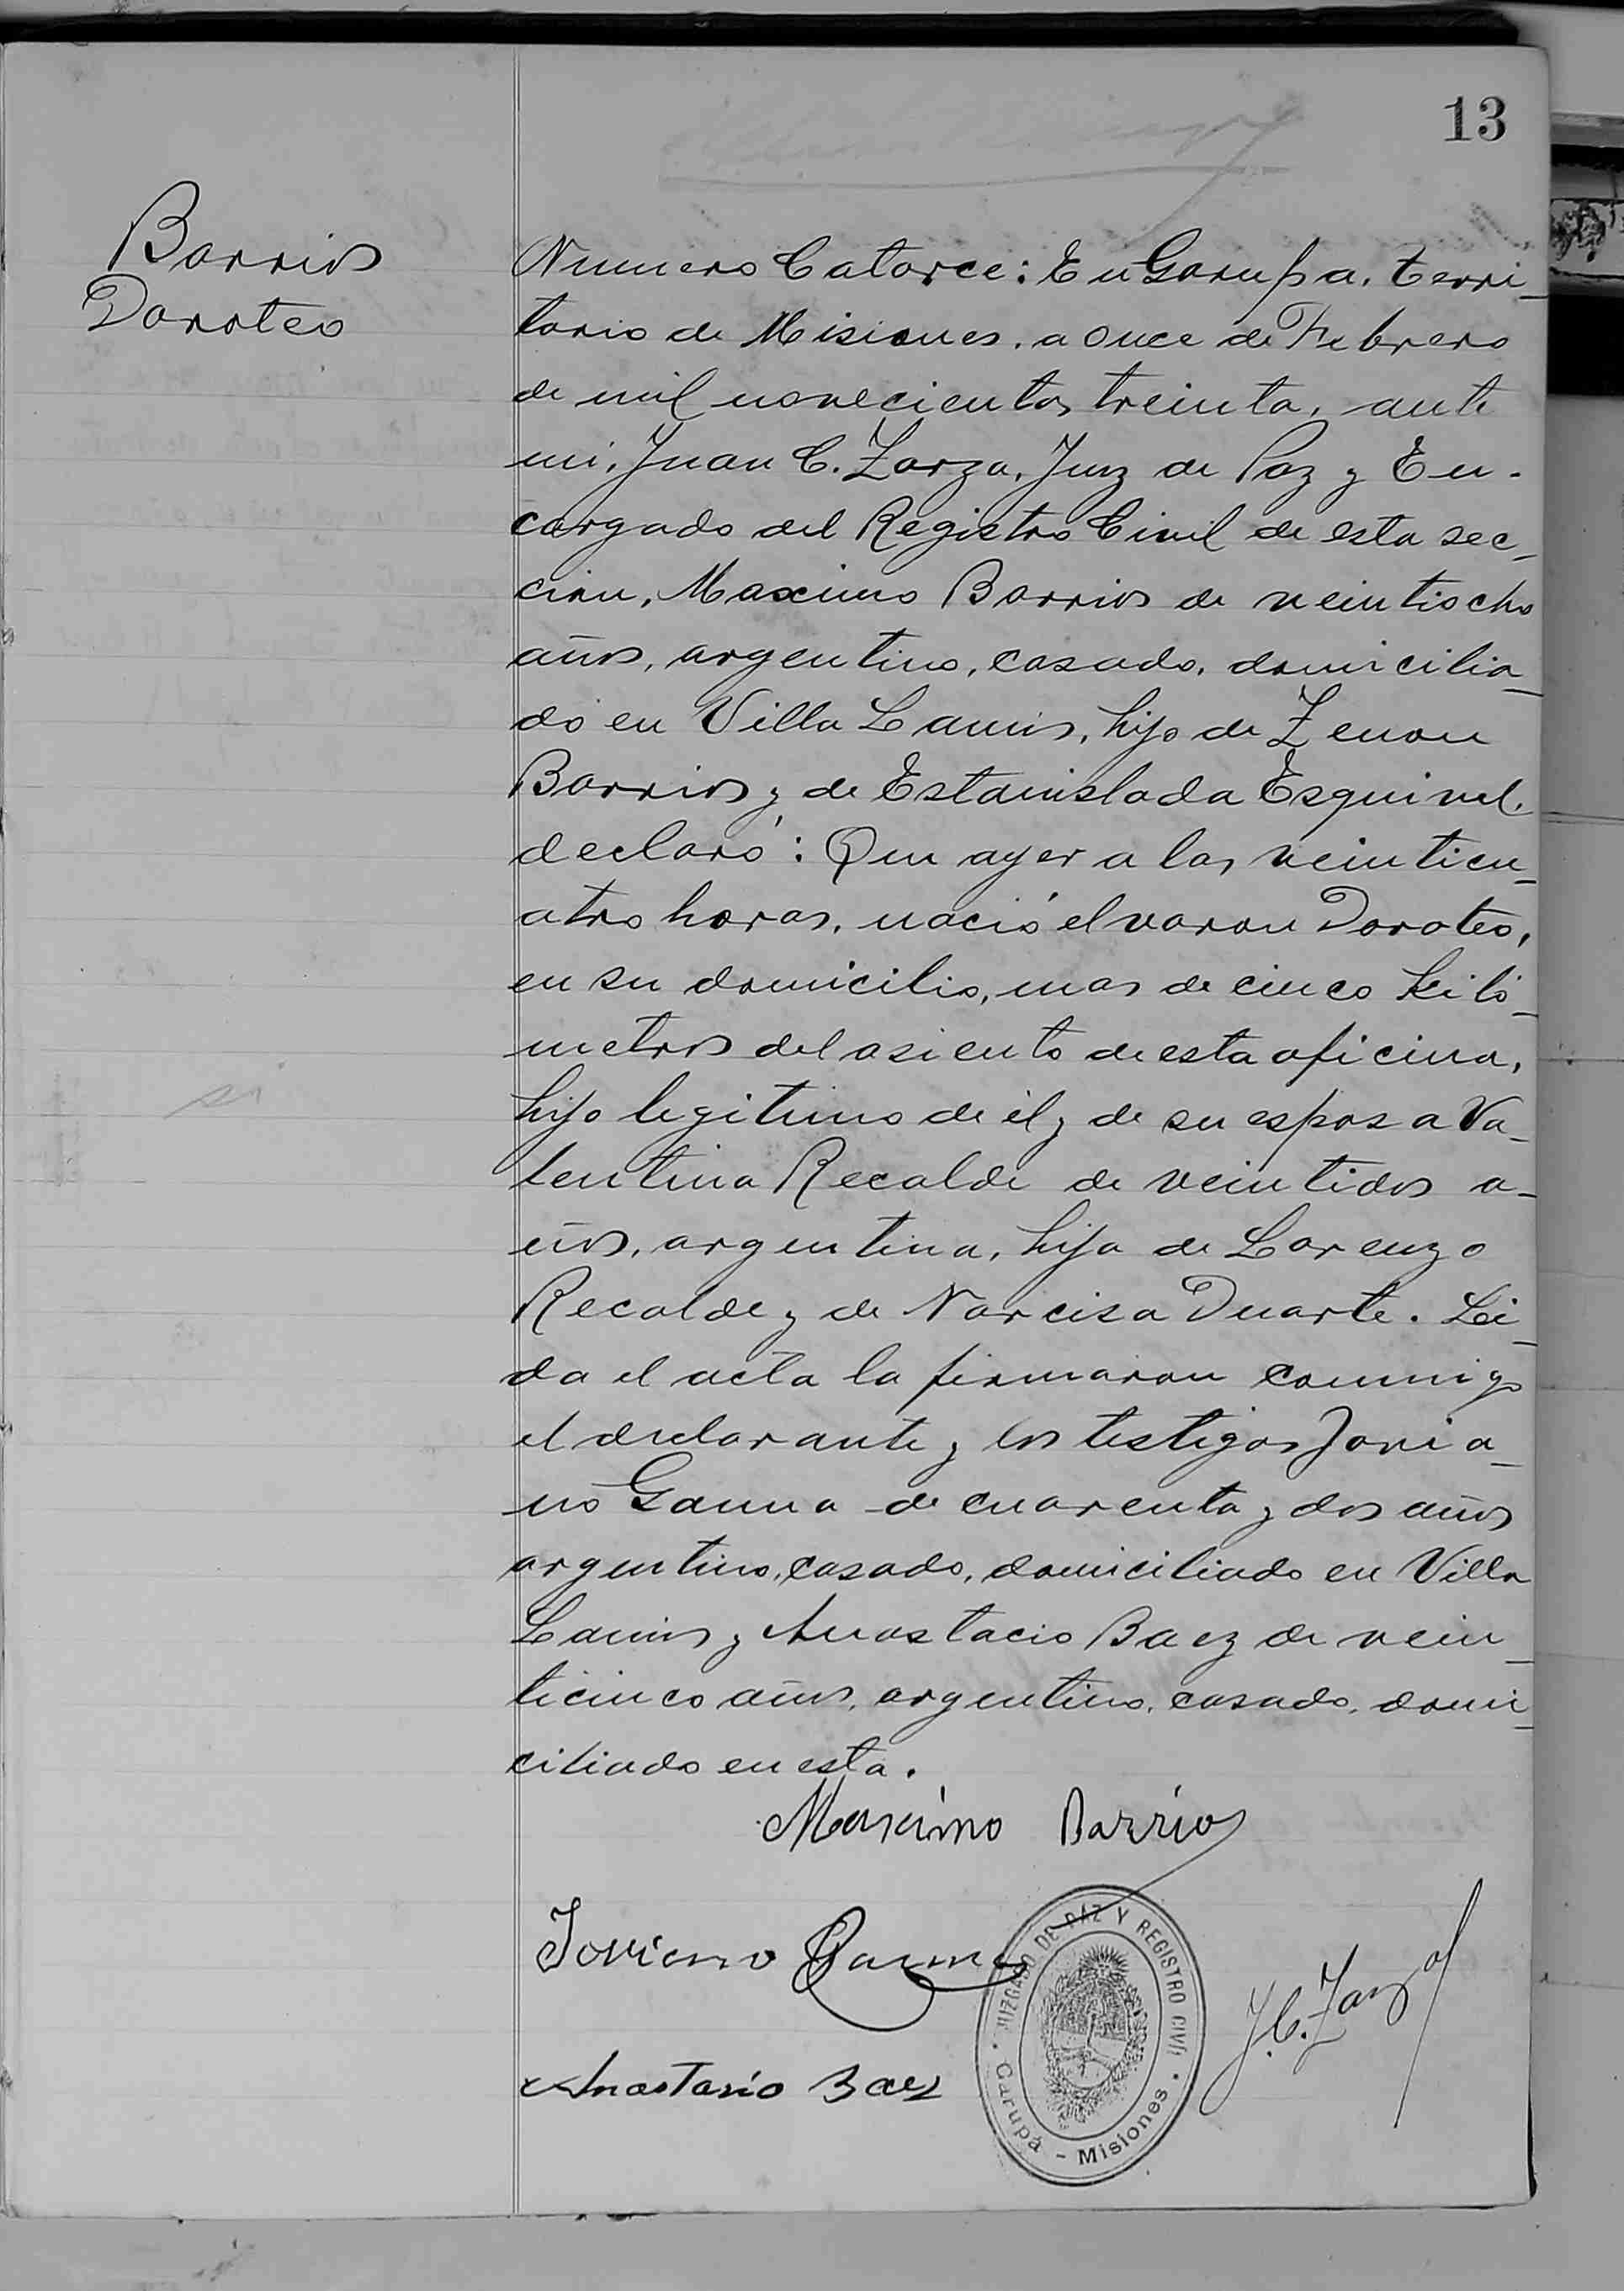 13
Barrios
Doroteo
Numero Catorce: En Garupa, Terri-
torio de Misiones, a once de Febrero
de mil novecientos treinta, ante
mi, Juan C. Zarza, Juez de Paz y En-
cargado del Registro Civil de esta sec-
cion, Maximo Barrios de veintiocho
años, argentino, casado, domicilia-
do en Villa Lanús, hijo de Zenon
Barrios y de Estanislada Esquivel,
declaró: Que ayer a las veinticu-
atro horas, nació el varon Doroteo,
en su domicilio, mas de cinco kiló-
metros del asiento de esta oficina,
hijo legitimo de él y de su esposa Va-
lentina Recalde de veintidos a-
ños, argentina, hija de Lorenzo
Recalde y de Narcisa Duarte. Lei-
da el acta la firmaron conmigo
el declarante y los testigos Jovia-
no Gauna de cuarenta y dos años
argentino, casado, domiciliado en Villa
Lanús y Anastacio Baez de vein-
ticinco años, argentino, casado, domi-
ciliado en esta.
si
Maximo Barrios
Joviano Gauna
JUZGADO DE PAZ Y REGISTRO CIVIL
Garupá - Misiones
J.C. Zarza
Anastasio Baez